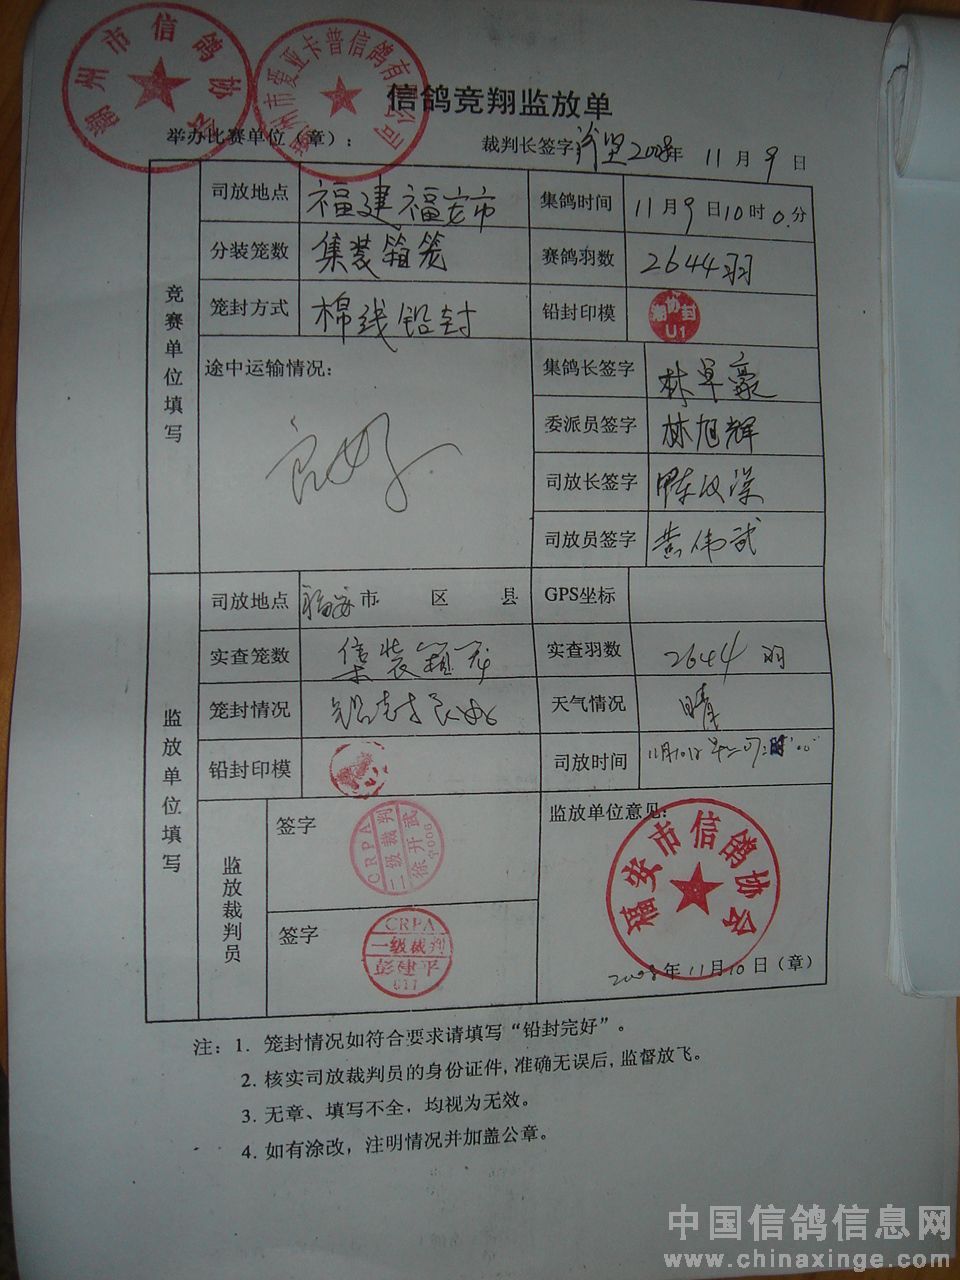 潮州市信鸽协会
潮州市爱亚卡普信鸽有限公司
信鸽竞翔监放单
举办比赛单位（章）： 裁判长签字 2008年 11月9日
竞赛单位填写
司放地点 福建福安市 集鸽时间 11月9日10时0分
分装笼数 集装箱笼 赛鸽羽数 2644羽
笼封方式 棉线铅封 铅封印模 潮协封 U1
途中运输情况： 良好
集鸽长签字 林卓豪
委派员签字 林旭辉
司放长签字 陈汉深
司放员签字 黄伟武
监放单位填写
司放地点 福安市 区 县 GPS坐标
实查笼数 集装箱笼 实查羽数 2644羽
笼封情况 铅封良好 天气情况 晴
铅封印模 司放时间 11月10日
监放裁判员
签字 CRPA 二级裁判 徐开武
签字 CRPA 一级裁判 彭建平 017
监放单位意见：
福安市信鸽协会
2008年11月10日（章）
注：1. 笼封情况如符合要求请填写“铅封完好”。
2. 核实司放裁判员的身份证件，准确无误后，监督放飞。
3. 无章、填写不全，均视为无效。
4. 如有涂改，注明情况并加盖公章。
中国信鸽信息网
www.chinaxinge.com